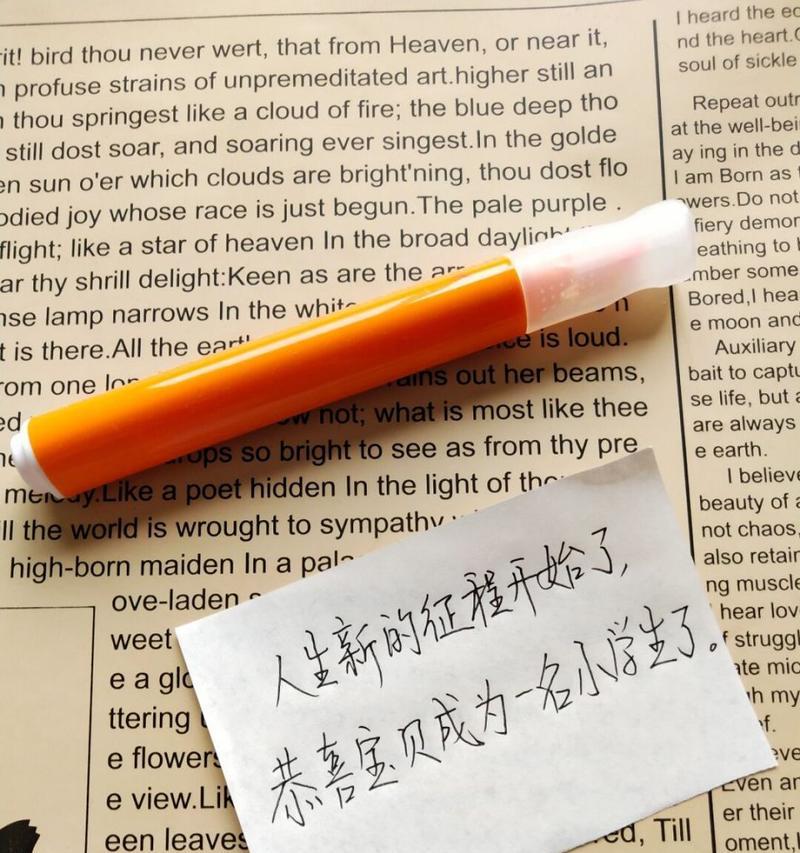 rit! bird thou never wert, that from Heaven, or near it,
profuse strains of unpremeditated art.higher still an
thou springest like a cloud of fire; the blue deep tho
still dost soar, and soaring ever singest.In the golde
en sun o'er which clouds are bright'ning, thou dost flo
odied joy whose race is just begun.The pale purple .
flight; like a star of heaven In the broad daylight
ar thy shrill delight:Keen as are the arr
nse lamp narrows In the white
t is there.All the earth
is loud.
rom one lon
ains out her beams,
ow not; what is most like thee
drops so bright to see as from thy pre
melody.Like a poet hidden In the light of thou
ill the world is wrought to sympathy
high-born maiden In a pala
ove-laden s
weet
e a glo
ttering
e flowers
e view.Lik
een leaves
ed, Till
I heard the ec
nd the heart.
soul of sickle
Repeat outr
at the well-bei
ay ing in the d
I am Born as
owers.Do not
fiery demor
eathing to
mber some
Bored,I hea
e moon and
Auxiliary
bait to captu
se life, but a
are always
e earth.
I believe
beauty of a
not chaos,
also retain
ng muscle
hear lov
f struggl
ate mic
h my
f.
eve
Even an
er their
oment,
人生新的征程开始了,
恭喜宝贝成为一名小学生了。